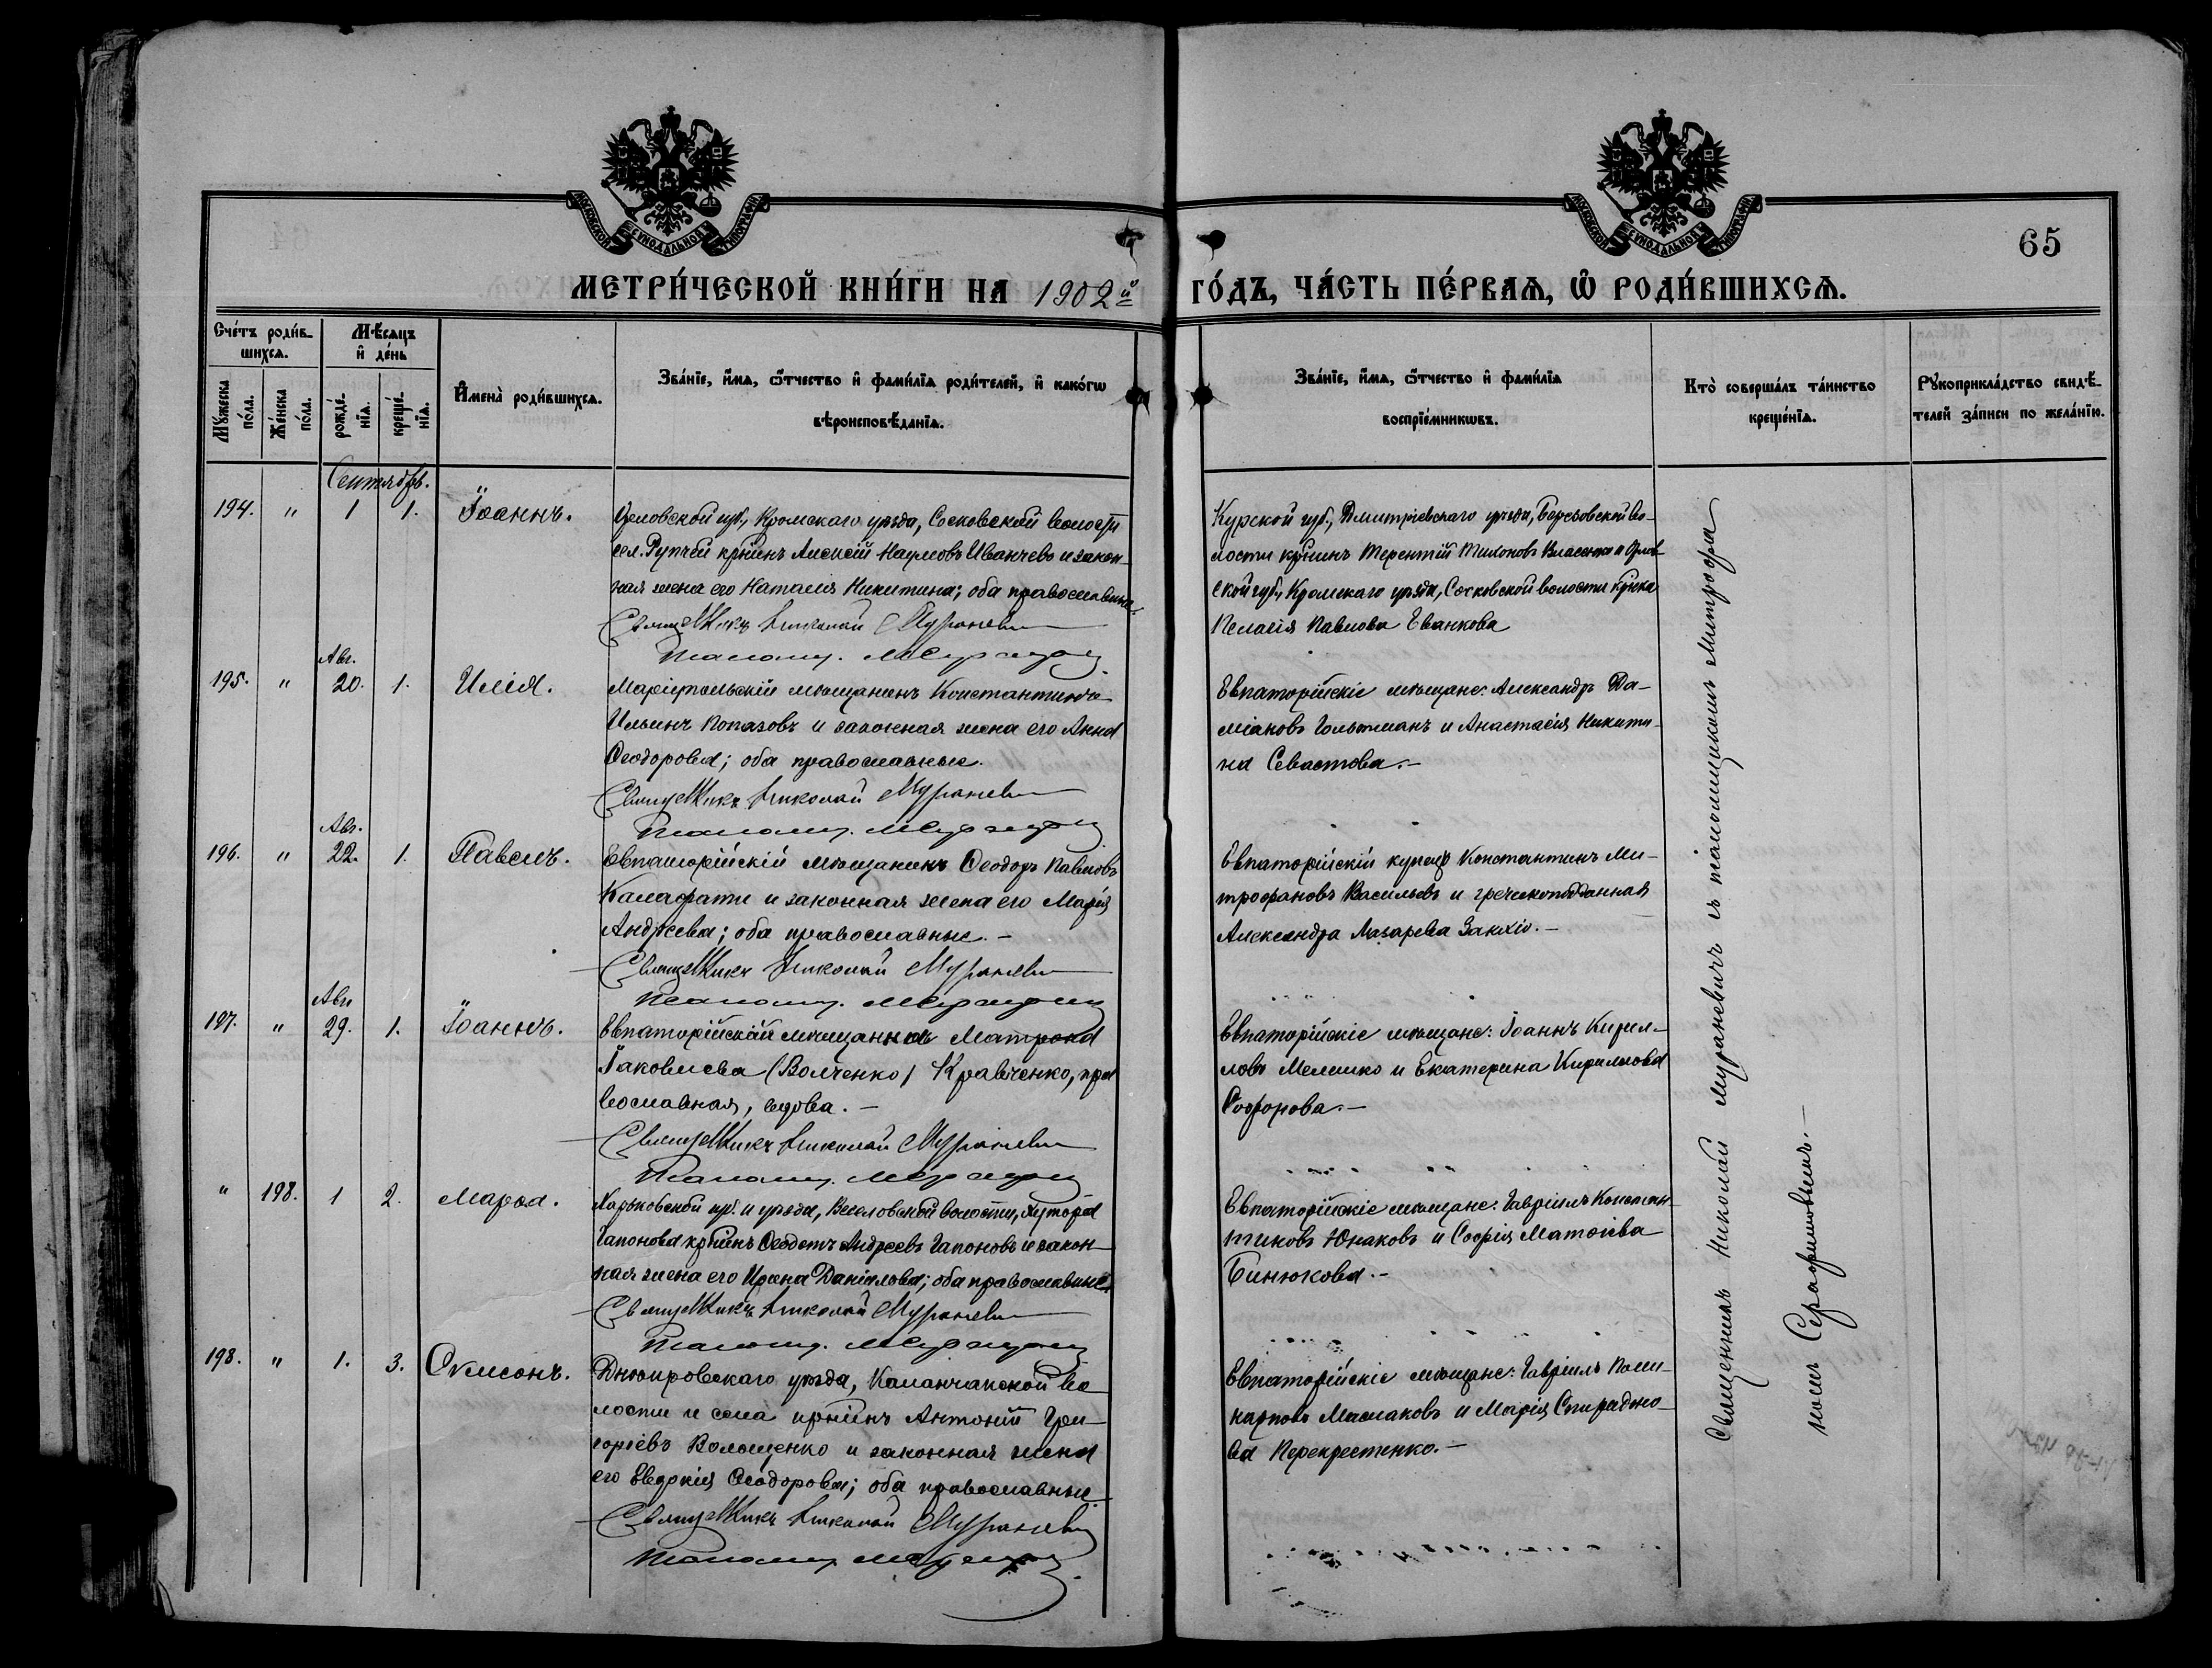 МОСКОВСКОЙ СѴНОДАЛЬНОЙ ТИПОГРАФІИ
МОСКОВСКОЙ СѴНОДАЛЬНОЙ ТИПОГРАФІИ
65
МЕТРИ́ЧЕСКОЙ КНИ́ГИ НА 1902й ГО́ДЪ, ЧА́СТЬ ПЕ́РВАѦ, Ѡ РОДИ́ВШИХСѦ.
Сче́тъ роди́в-
шихсѧ.
Мꙋжеска по́ла.
Же́нска по́ла.
Мѣсѧцъ
и де́нь
рожде́-
нїѧ.
креще́-
нїѧ.
Имена̀ роди́вшихсѧ.
Зва́нїе, и́мѧ, ѻ́тчество и фами́лїѧ роди́телей, и како́гѡ
вѣроисповѣ́данїѧ.
Зва́нїе, и́мѧ, ѻ́тчество и фами́лїѧ
воспрїе́мникѡвъ.
Кто̀ соверша́лъ та́инство
креще́нїѧ.
Рꙋкоприкла́дство свидѣ́-
телей за́писи по жела́нїю.
Сентябрь.
194. " 1 1. Іоаннъ.
Орловской губ., Кромскаго уѣзда, Сосковской волости
сел. Рупчей кр̃нинъ Алексій Наумовъ Иванчевъ и закон-
ная жена его Наталія Никитина; оба православные.
Священникъ Николай Мураневичъ
Псаломщ.
Курской губ., Дмитріевскаго уѣзда, Березовской во-
лости кр̃нинъ Терентій Тихоновъ Власенко и Орлов-
ской губ., Кромскаго уѣзда, Сосковской волости кр̃нка
Пелагія Павлова Еванкова
Авг.
195. " 20. 1. Илія.
Маріупольскій мѣщанинъ Константинъ
Ильинъ Попазовъ и законная жена его Анна
Ѳеодорова; оба православные.
Священникъ Николай Мураневичъ
Псаломщ.
Евпаторійскіе мѣщане: Александръ Да-
міановъ Гольтманъ и Анастасія Никити-
на Севастова.-
Авг.
196. " 22. 1. Павелъ.
Евпаторійскій мѣщанинъ Ѳеодоръ Павловъ
Калафати и законная жена его Марія
Андреева; оба православные.-
Священникъ Николай Мураневичъ
Псаломщ.
Евпаторійскій купецъ Константинъ Ми-
трофановъ Васильевъ и греческоподданная
Александра Лазарева Занхіо.-
Авг.
197. " 29. 1. Іоаннъ.
Евпаторійская мѣщанка Матрона
Іаковлева (Волченко) Кравченко, пра
вославная, вдова.-
Священникъ Николай Мураневичъ
Псаломщ.
Евпаторійскіе мѣщане: Іоаннъ Кирил-
ловъ Мелешко и Екатерина Кириллова
" 198. 1 2. Марѳа.
Харьковской губ. и уѣзда, Веселовской волости, Хутора
Гапонова кр̃нинъ Ѳеодотъ Андреевъ Гапоновъ и закон-
ная жена его Ирина Даніилова; оба православные.
Священникъ Николай Мураневичъ
Псаломщ.
Евпаторійскіе мѣщане: Гавріилъ Констан-
тиновъ Юнаковъ и Софія Матѳіева
Бинюкова.-
198. " 1. 3. Самсонъ.
Днѣпровскаго уѣзда, Каланчакской во
лости и села кр̃нинъ Антоній Гри-
горіевъ Волощенко и законная жена
его Евдокія Ѳеодорова; оба православные.
Священникъ Николай Мураневичъ
Псаломщ.
Евпаторійскіе мѣщане: Гавріилъ Поли-
карповъ Маслаковъ и Марія Спиридоно-
ва Перекрестенко.-
Священникъ Николай Мураневичъ съ псаломщикомъ Митрофа
номъ Серафимовымъ.-